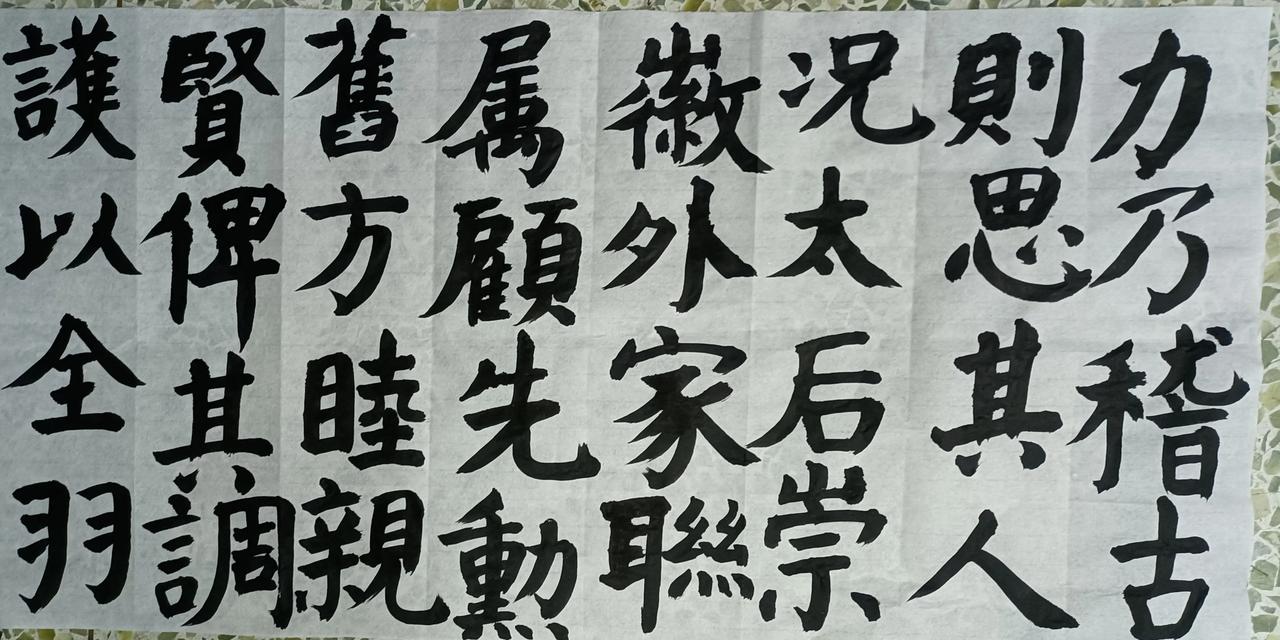 力乃稽古
則思其人
况太后崇
徽外家聯
属顧先勳
舊方睦親
賢俾其調
護以全羽